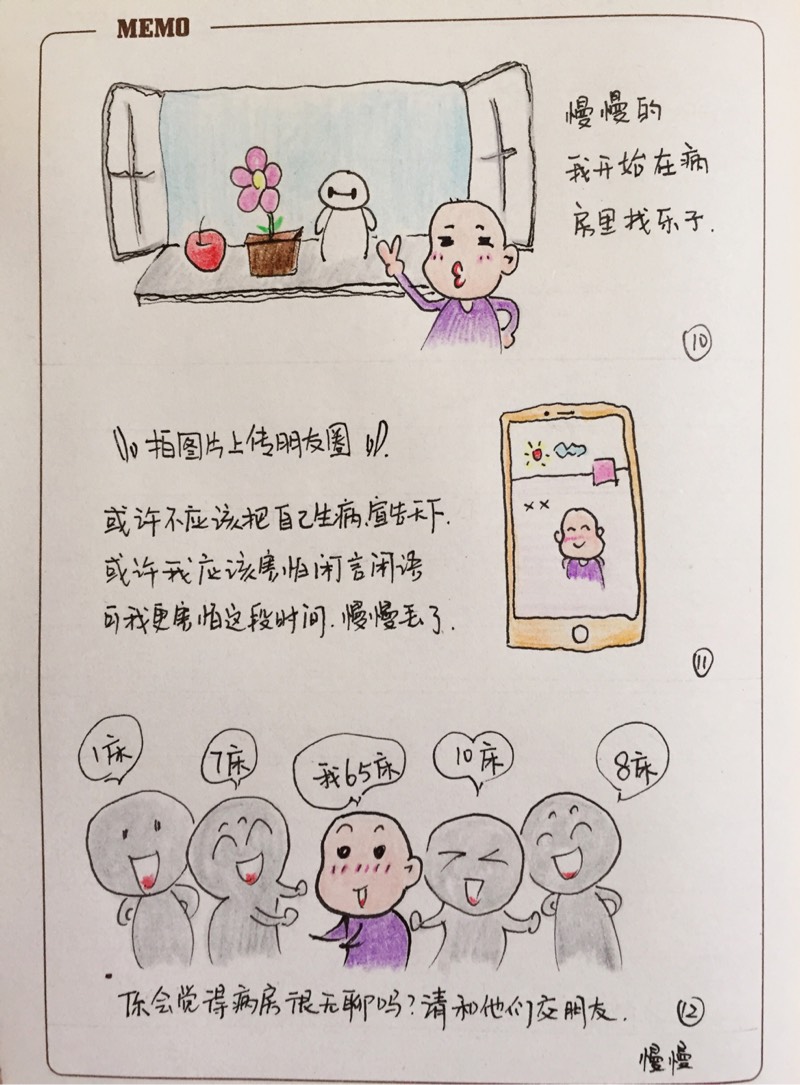 MEMO
慢慢的
我开始在病
房里找乐子.
10
拍图片上传朋友圈
或许不应该把自己生病宣告天下.
或许我应该害怕闲言闲语
可我更害怕这段时间.慢慢丢了.
11
1床
7床
我65床
10床
8床
你会觉得病房很无聊吗?请和他们交朋友.
12
慢慢